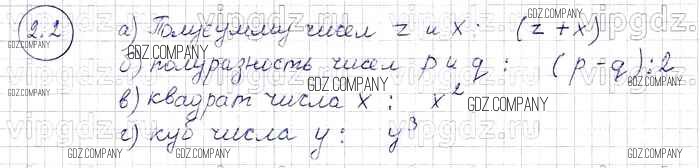 2.2 а) Полусумму чисел z и x : (z+x)
б) полуразность чисел p и q : (p-q):2
в) квадрат числа x : x²
г) куб числа y : y³
GDZ.COMPANY
vipgdz.ru